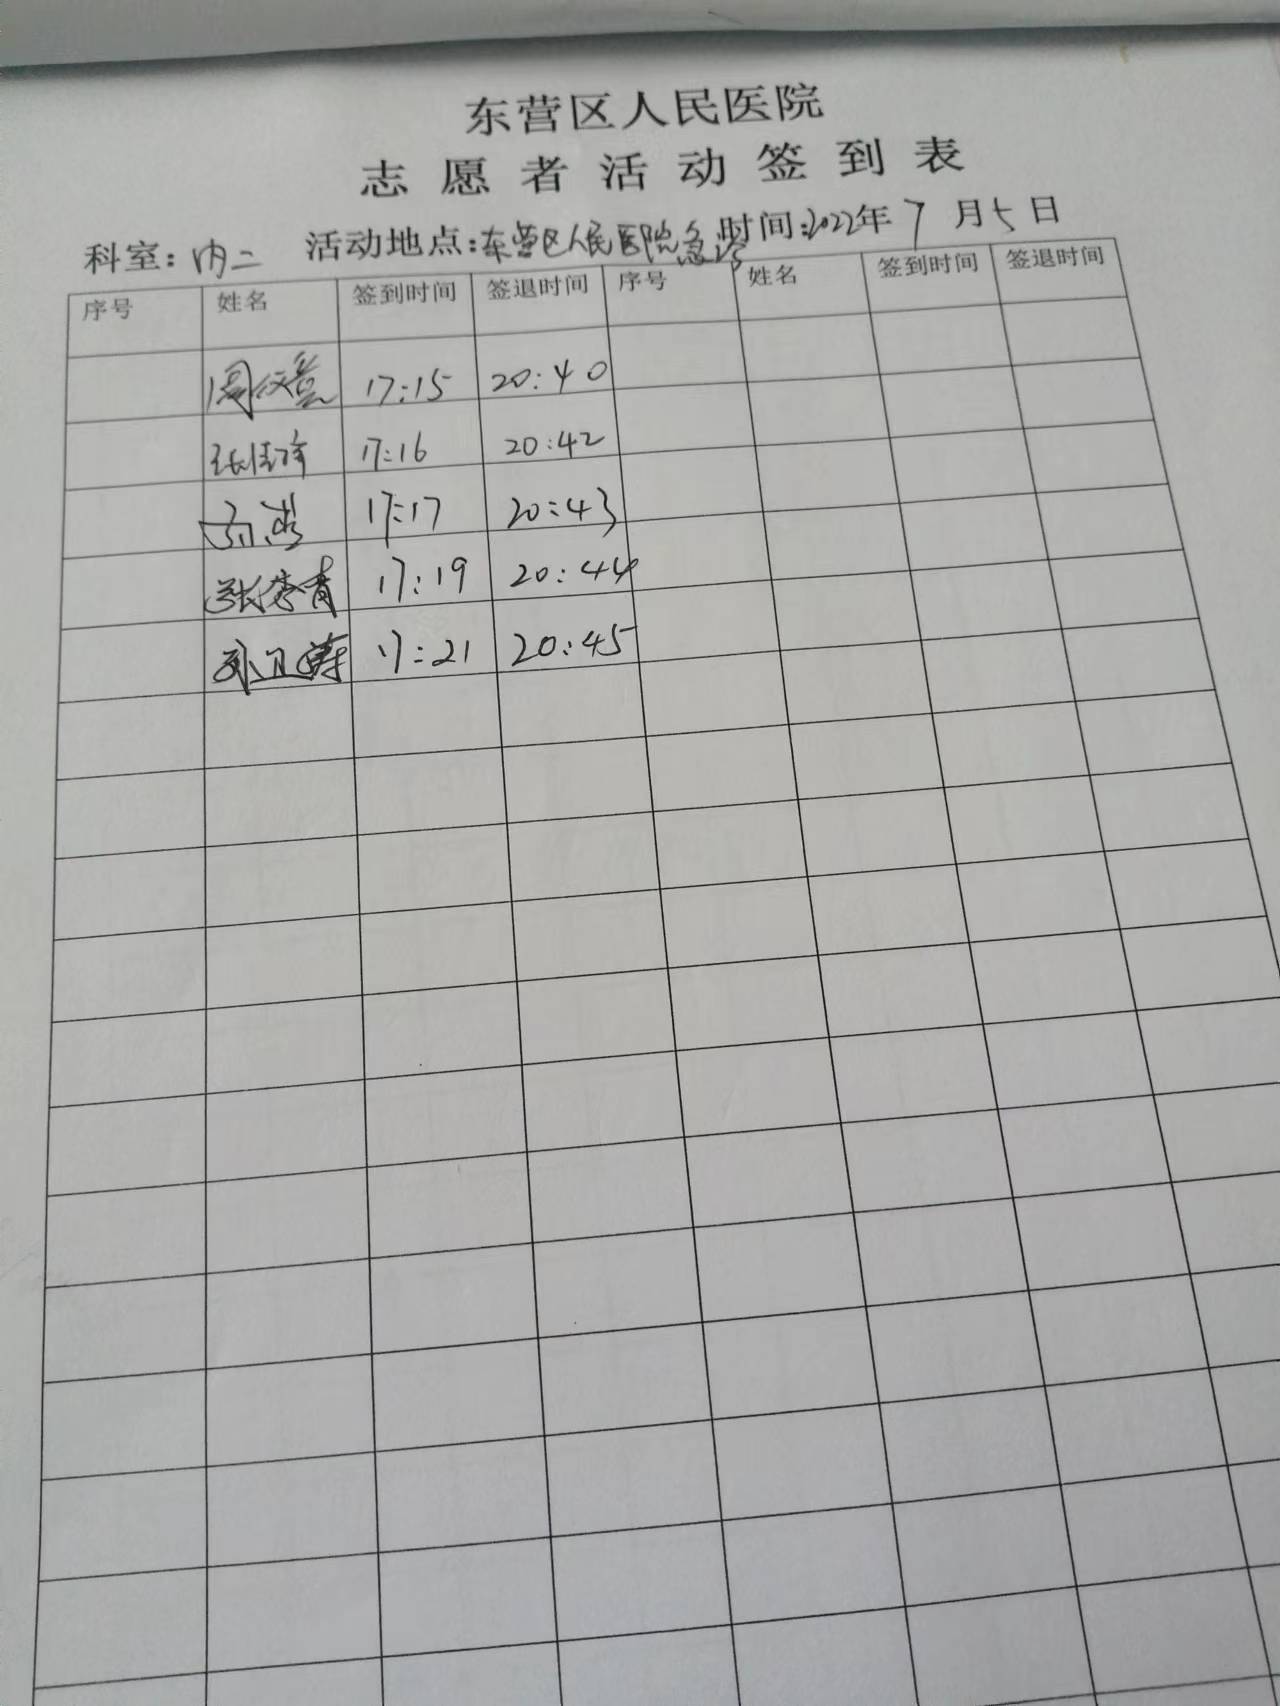 东营区人民医院
志愿者活动签到表
科室：内二 活动地点：东营区人民医院急诊 时间：2022年7月5日
序号 姓名 签到时间 签退时间 序号 姓名 签到时间 签退时间
17:15 20:40
17:16 20:42
17:17 20:43
张秀青 17:19 20:44
孙卫涛 17:21 20:45